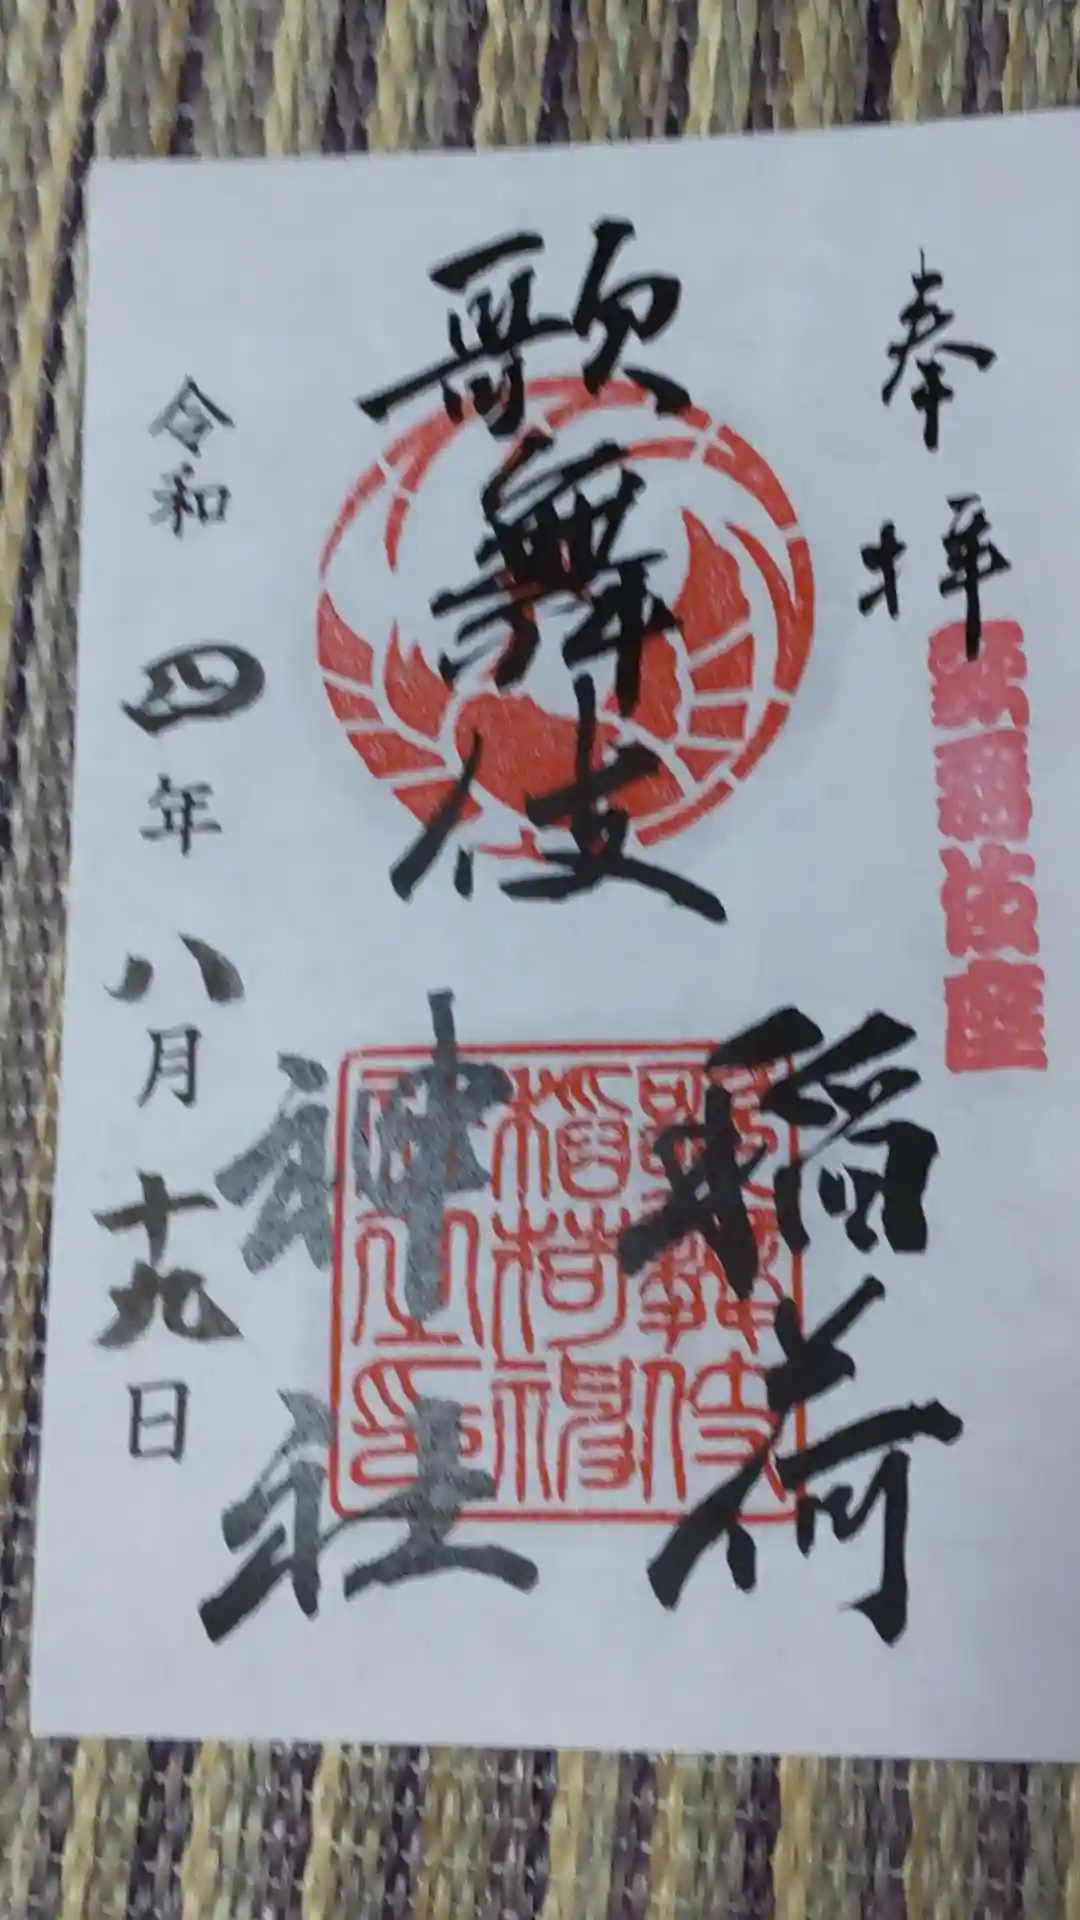 奉拝
歌舞伎座
歌舞伎
稲荷
神社
歌舞伎
稲荷神
社之印
令和四年八月十九日